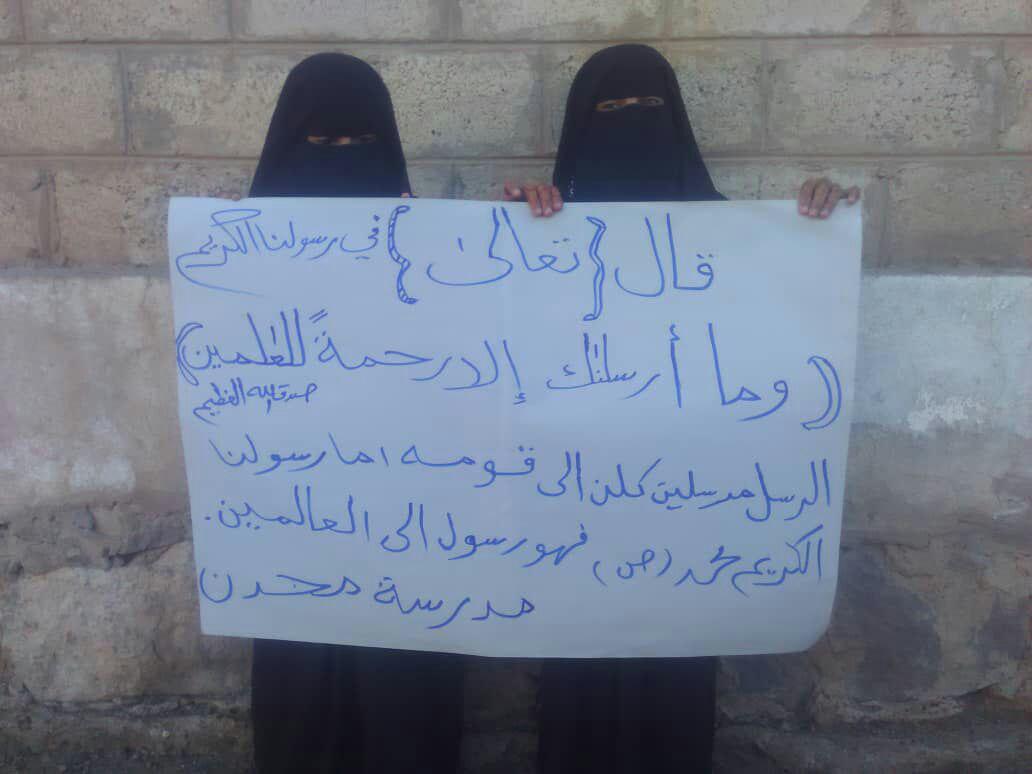 قال {تعالى} في رسولنا الكريم
((وما أرسلنٰك إلا رحمةً للعٰلمين))
صدق الله العظيم
الرسل مرسلين كلن الى قومه اما رسولنا
الكريم محمد (ص) فهو رسول الى العالمين.
مدرسة مخدن